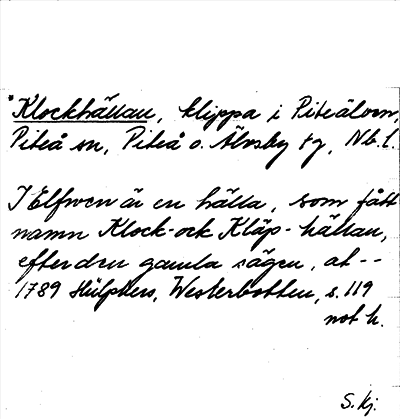 *Klockhällan, klippa i Piteälven,
Piteå sn, Piteå o. Älvsby tg, Nb. l.
I Elfwen är en hälla, som fått
namn Klock- ock Kläp-hällan,
efter den gamla sägen, at --
1789 Hülphers, Westerbotten, s. 119
not h.
S. Kj.